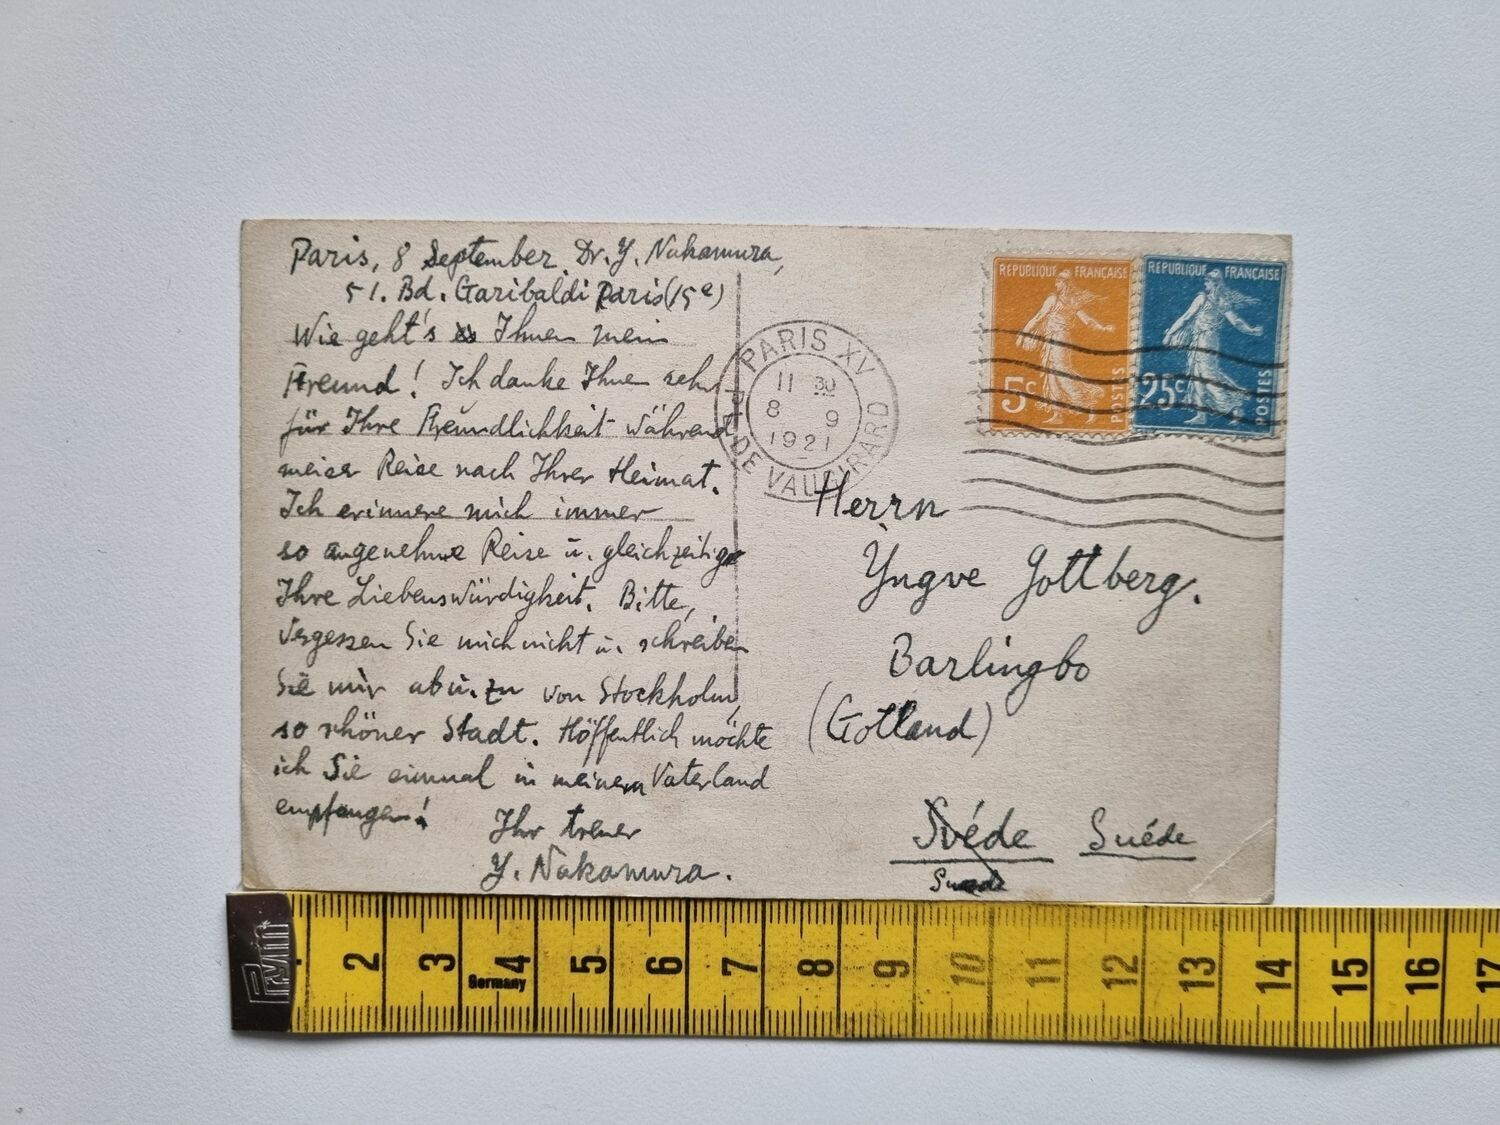 Paris, 8 September Dr. Y. Nakamura,
51. Bd. Garibaldi Paris (15e)
Wie geht's Ihnen mein
Freund! Ich danke Ihnen sehr
für Ihre Freundlichkeit während
meiner Reise nach Ihrer Heimat.
Ich erinnere mich immer
so angenehme Reise u. gleichzeitig
Ihre Liebenswürdigkeit. Bitte,
vergessen Sie mich nicht u. schreiben
Sie mir ab u. zu von Stockholm,
so schöner Stadt. Höffentlich möchte
ich Sie einmal in meinem Vaterland
empfangen!
Ihr treuer
Y. Nakamura.
PARIS XV
11 30
8 9
1921
DE VAUGIRARD
REPUBLIQUE FRANÇAISE
5c
POSTES
REPUBLIQUE FRANÇAISE
25c
POSTES
Herrn
Yngve Gottberg.
Barlingbo
(Gotland)
Suéde
Prym
2 3 4 5 6 7 8 9 10 11 12 13 14 15 16 17
Germany